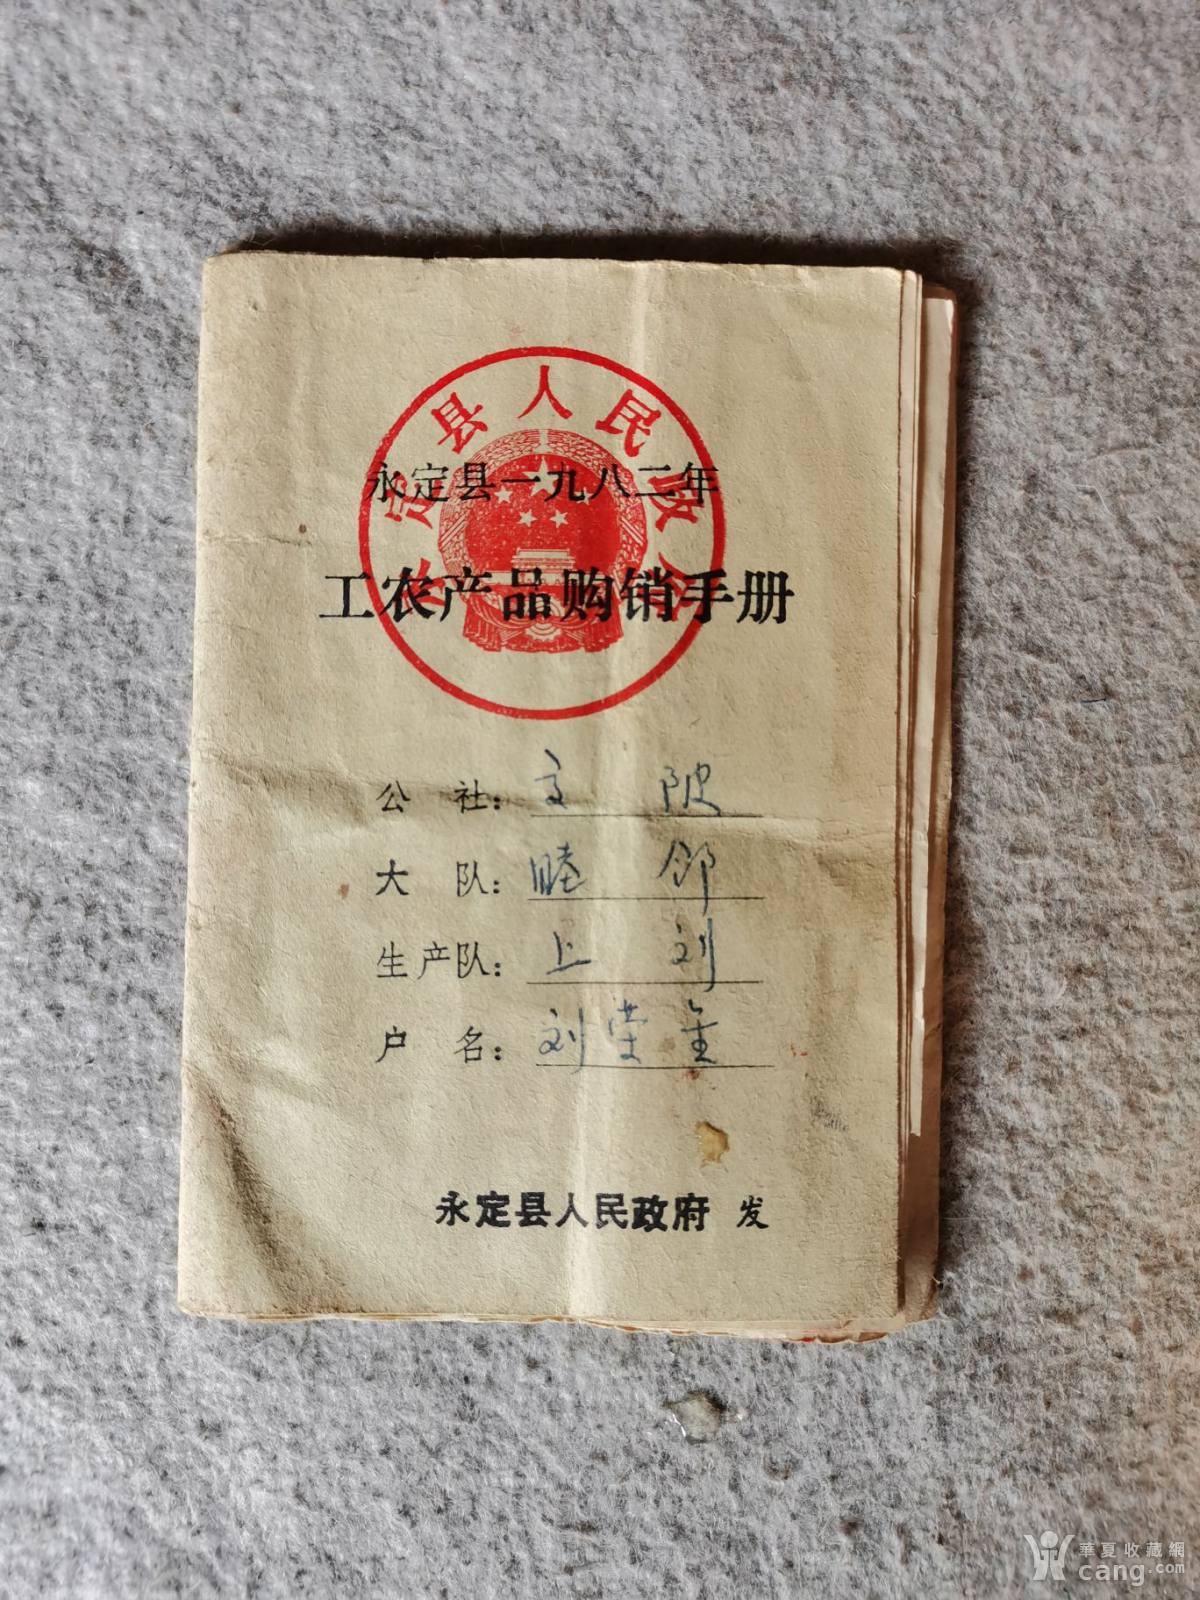 永定县人民政府
永定县一九八二年
工农产品购销手册
公社：高陂
大队：睦邻
生产队：上刘
户名：刘荣金
永定县人民政府 发
華夏收藏網
cang.com